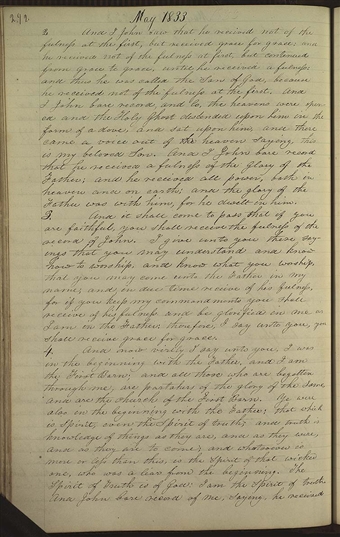 292. May 1833
2. And I John saw that he received not of the
fulness at the first, but received grace for grace; and
he received not of the fulness at first, but continued
from grace to grace, until he received a fulness;
and thus he was called the Son of God, because
he received not of the fulness at the first. And
I John bare record, and lo, the heavens were open-
ed and the Holy Ghost descended upon him in the
form of a dove, and sat upon him, and there
came a voice out of the heaven saying, this
is my beloved Son. And I John bare record
that he received a fulness of the glory of the
Father; and he received all power, both in
heaven and on earth; and the glory of the
Father was with him, for he dwelt in him.
3. And it shall come to pass, that if you
are faithful, you shall receive the fulness of the
record of John. I give unto you these say-
ings that you may understand and know
how to worship, and know what you worship,
that you may come unto the Father in my
name, and in due time receive of his fulness,
for if you keep my commandments you shall
receive of his fulness and be glorified in me as
I am in the Father: therefore, I say unto you, you
shall receive grace for grace.
4. And now verily I say unto you, I was
in the beginning with the Father, and I am
the First Born; and all those who are begotten
through me, are partakers of the glory of the same,
and are the church of the First Born. Ye were
also in the beginning with the Father; that which
is Spirit, even the Spirit of truth; and truth is
knowledge of things as they are, and as they were,
and as they are to come; and whatsoever is
more or less than this, is the Spirit of that wicked
one, who was a liar from the beginning. The
Spirit of truth is of God. I am the Spirit of truth
And John bare record of me, saying, he received